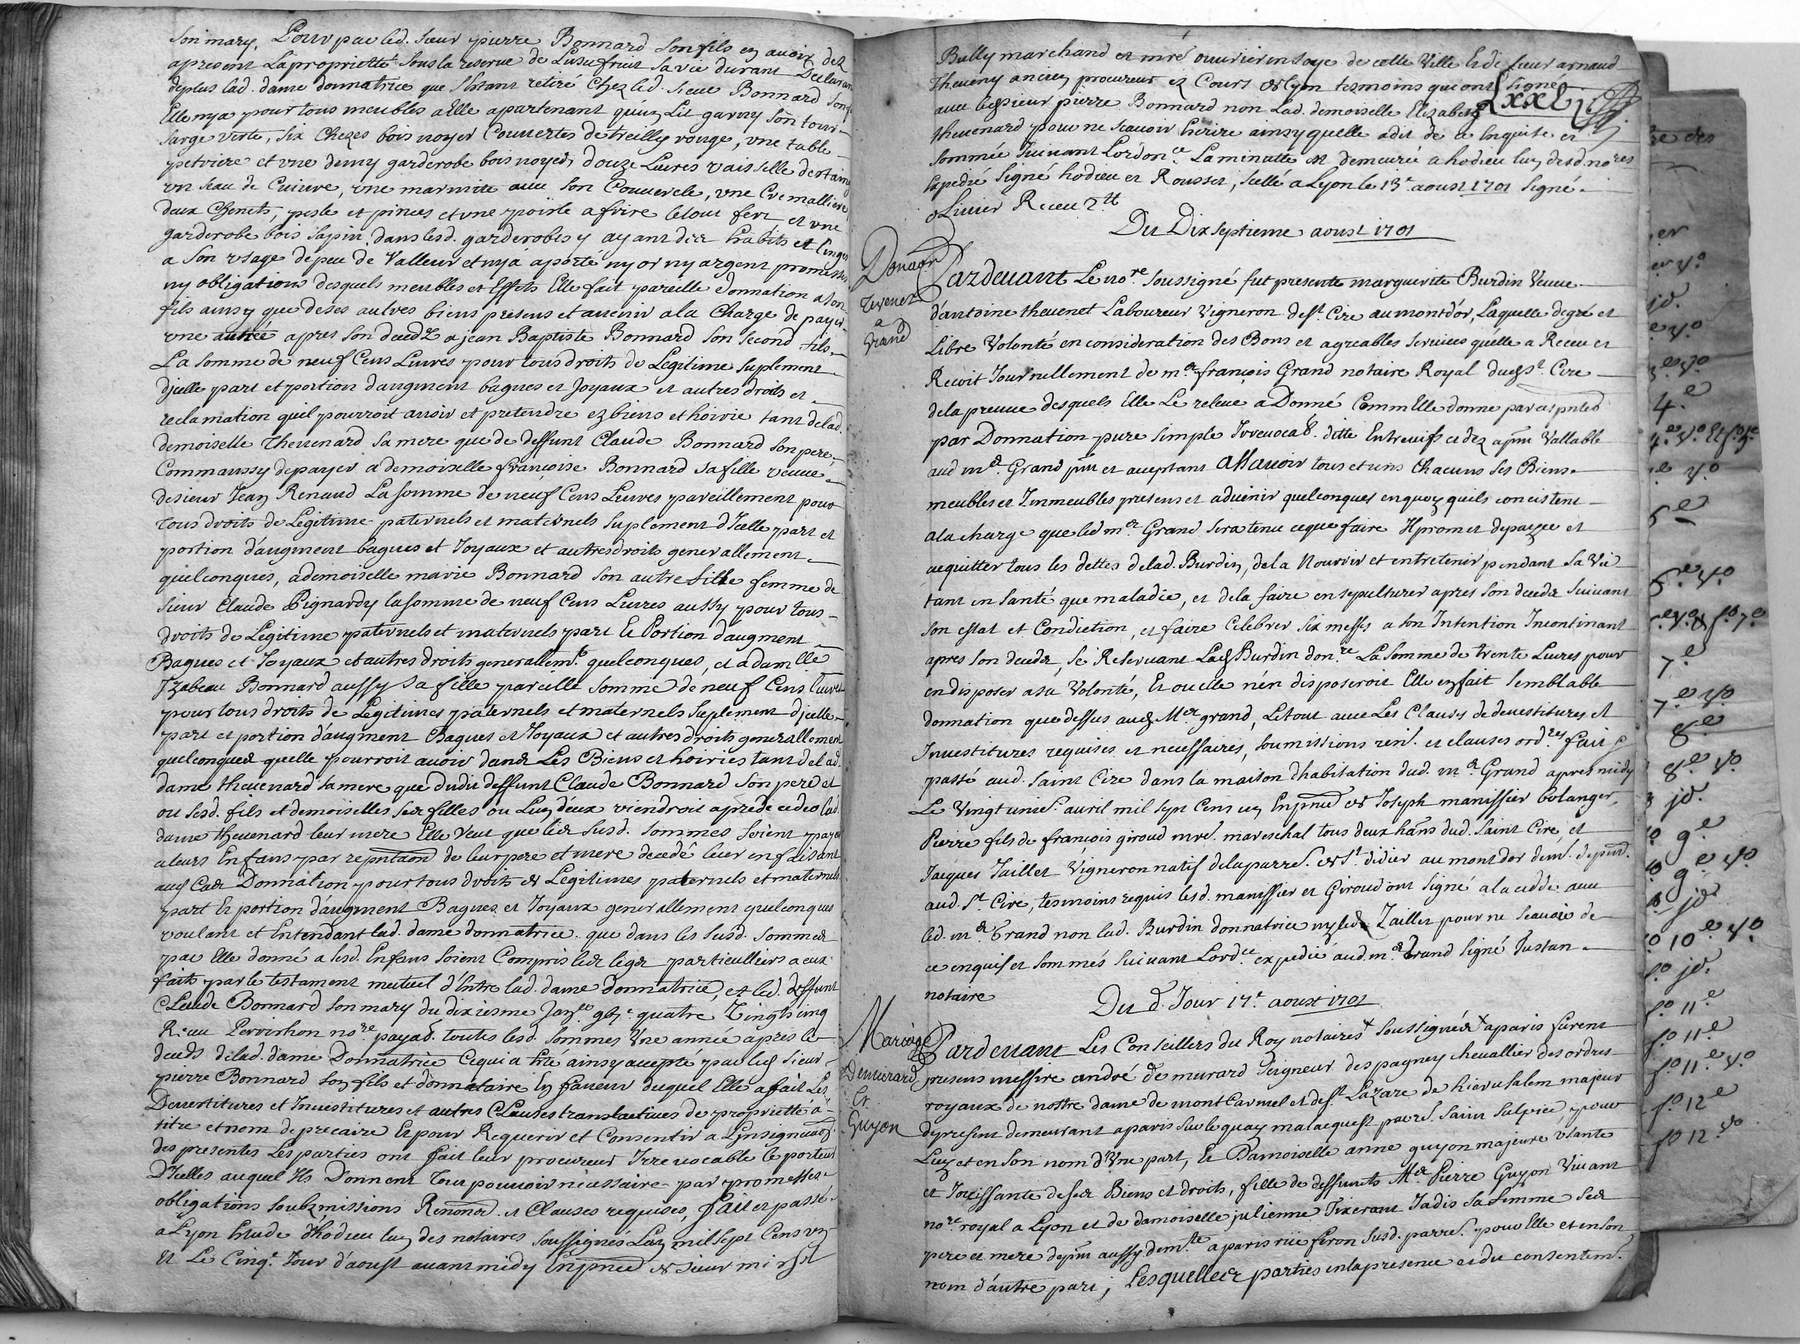 son mary, Pour par led. sieur pierre Bonnard son fils en avoir dez
apresent La proprietté sous la reserve de Lusufruit sa vie durant Declarant
deplus lad. dame donnatrice que s'estant retiré Chez led. sieur Bonnard son fils
Elle n'a pour tous meubles a elle appartenant qu'un Lit garny son tour
sarge verte, six Chezes bois noyer Couvertes de treilly rouge, une table
petriere et une demy garderobe bois noyer, douze Livres vaisselle d'estaing
un seau de Cuivre, une marmitte avec son Couvercle, une Cremalliere
deux Chenets, pesle et pinces et une poisle a frire le tout fert et une
garderobe bois sapin, dans lesd. garderobes y ayant des habits et Linges
a son usage de peu de Valleur et n'y a aporté ny or ny argent promesses
ny obligations desquels meubles et Effets Elle fait pareille donnation a son
fils ainsy que de ses autres biens presens et avenir a la Charge de payer
une année apres son decedz a jean Baptiste Bonnard son second fils
La somme de neuf Cens Livres pour tous droits de Legitime suplement
d'jcelle part et portion d'augment bagues et Joyaux et autres droits et
reclamation quil pourroit avoir et pretendre ez biens et hoirie tant de lad.
demoiselle Thevenard sa mere que de deffunt Claude Bonnard son pere
Comm'aussy de payer a demoiselle françoise Bonnard sa fille veuve
de sieur Jean Renaud La somme de neuf Cens Livres pareillement pour
tous droits de Legitime paternels et maternels suplement d'Icelle part et
portion d'augment bagues et Joyaux et autres droits generallement
quelconques, a demoiselle marie Bonnard son autre fille femme de
sieur Claude Pignardy la somme de neuf Cens Livres aussy pour tous
droits de Legitime paternels et maternels part Et Portion d'augment
Bagues et Joyaux et autres droits generallemt. quelconques, et a damlle
Izabeau Bonnard aussy sa fille pareille somme de neuf Cens Livres
pour tous droits de Legitimes paternels et maternels suplement d'jcelle
part et portion d'augment Bagues et Joyaux et autres droits generallement
quelconques quelle pourroit avoir dans Les Biens et hoiries tant de lad.
dame thevenard sa mere que dudit deffunt Claude Bonnard son pere et
ou sesd. fils et demoiselles ses filles ou Lun deux viendroit a preceder lad.
dame thevenard leur mere Elle veut que les susd. sommes soient payées
a leurs Enfans par repntaon de leur pere et mere decedé leur en faisant
aussy Donnation pour tous droits de Legitimes paternels et maternels
part Et portion d'augment Bagues et Joyaux generallement quelconques
voulant et Entendant lad. dame donnatrice que dans les susd. sommes
par Elle donné a sesd. Enfans soient Compris les legs particulliers a eux
faits par le testament mutuel d'Entre lad. dame donnatrice, et led. deffunt
Claude Bonnard son mary du dixieme Janv. quatre Vingt cinq
Reçu Perrichon nore. payab. toutes lesd. sommes Une année apres le
deceds de lad. dame Donnatrice Ce qui a Esté ainsy accepté par led. sieur
pierre Bonnard son fils et donnataire En faveur duquel Elle a fait Les
Devestitures et Investitures et autres Clauses translatives de proprietté a
titre et nom de precaire Et pour Requerir et Consentir a L'insignuaon
des presentes Les parties ont fait leur procureur Irrevocable le porteur
D'Icelles auquel Ils Donnent tout pouvoir necessaire par promesses
obligations soubzmissions Renonon. et Clauses requises, fait et passé
a Lyon Etude d'hodieu lun des notaires soussignés Lan mil sept Cens un
Et Le Cinqe. Jour d'aoust avant midy En pnce de sieur
Bully marchand et mre ouvrier en soye de cette Ville Et de sieur arnaud
Theveny ancien procureur ez Cours de Lyon tesmoins qui ont signé
avec led sieur pierre Bonnard non Lad. demoiselle Elizabet
Lxxxi
thevenard pour ne scavoir Escrire ainsy quelle a dit de ce Enquise et
sommée suivant Lordonce. La minutte est demeurée a hodieu lun desd. nores
Expedié signé hodieu et Rousset, scellé a Lyon le 13e aoust 1701 signé
olivier Receu 2tt
Du Dix septieme aoust 1701
Donaon
Tevenet
a
Grand
Pardevant Le nore soussigné fut presente marguerite Burdin Veuve
d'antoine thevenet Laboureur Vigneron de St. Cire au montd'or, Laquelle de gré et
Libre Volonté en consideration des Bons et agreables services quelle a Receu et
Recoit Journellement de me françois Grand notaire Royal dud St. Cire
de la preuve desquels Elle Le releve a Donné Comm'Elle donne par ces pntes
par Donnation pure simple Irrevocab. ditte Entrevifs ce dez a pnt Vallable
aud me. Grand pnt et acceptant Assavoir tous et uns Chacuns ses Biens
meubles et Immeubles presens et advenir quelconques en quoy quils consistent
a la charge que led me. Grand sera tenu ce que faire Il promet de payer et
acquitter tous les dettes de lad. Burdin, de la Nourrir et entretenir pendant sa Vie
tant en santé que maladie, et de la faire ensepulturer apres son deceds suivant
son estat et Condiction, et faire Celebrer six messes a son Intention Incontinant
apres son deceds, se Reservant Lad Burdin donre. La somme de trente Livres pour
en disposer a sa Volonté, Et ou elle n'en disposeroit Elle en fait semblable
donnation que dessus aud Me grand, Le tout avec Les Clauses de devestitures et
Investitures requises et necessaires, soumissions renon. et clauses ordres fait &
passé aud. saint Cire dans la maison d'habitation dud. me Grand apres midy
Le Vingt unie. avril mil sept Cens un En pnce de Joseph manissier bolanger,
Pierre fils de françois giroud mre. mareschal tous deux hans dud. saint Cire, et
Jacques Jaillet Vigneron natif de la parre. de St. didier au mont dor dem. a pnt.
aud. St. Cire, tesmoins requis lesd. manissier et Giroud ont signé a la cedde avec
led. me Grand non lad. Burdin donnatrice ny led. Jaillet pour ne scavoir de
ce enquis et sommés suivant Lordce. expedié aud. me Grand signé Justan
notaire
Du d. Jour 17e aoust 1701
Mariage
Demurard
Et
Guyon
Pardevant Les Conseillers du Roy notaires soussignés a paris furent
presens messire andré de murard seigneur des pagney chevallier des ordres
royaux de nostre dame de mont Carmel et de St. Lazare de hierusalem majeur
de present demeurant a paris sur le quay malacquest parre. saint sulpice, pour
Luy et en son nom d'une part, Et Damoiselle anne guyon majeure usante
et Jouissante de ses Biens et droits, fille de deffunts Me Pierre Guyon Vivant
nore. royal a Lyon et de damoiselle julienne Tixerant Jadis sa femme ses
pere et mere de pnt aussy demte a paris rüe feron susd. parre. pour Elle et en son
nom d'autre part; Lesquelles parties en la presence et du consentemt.
4.e
6e
7e
7e vo
8e
8e vo
jd.
9e
9e vo
jd
10e vo
fo jd.
fo 11e
fo 11e
fo 11e vo
fo 12e
fo 12 vo